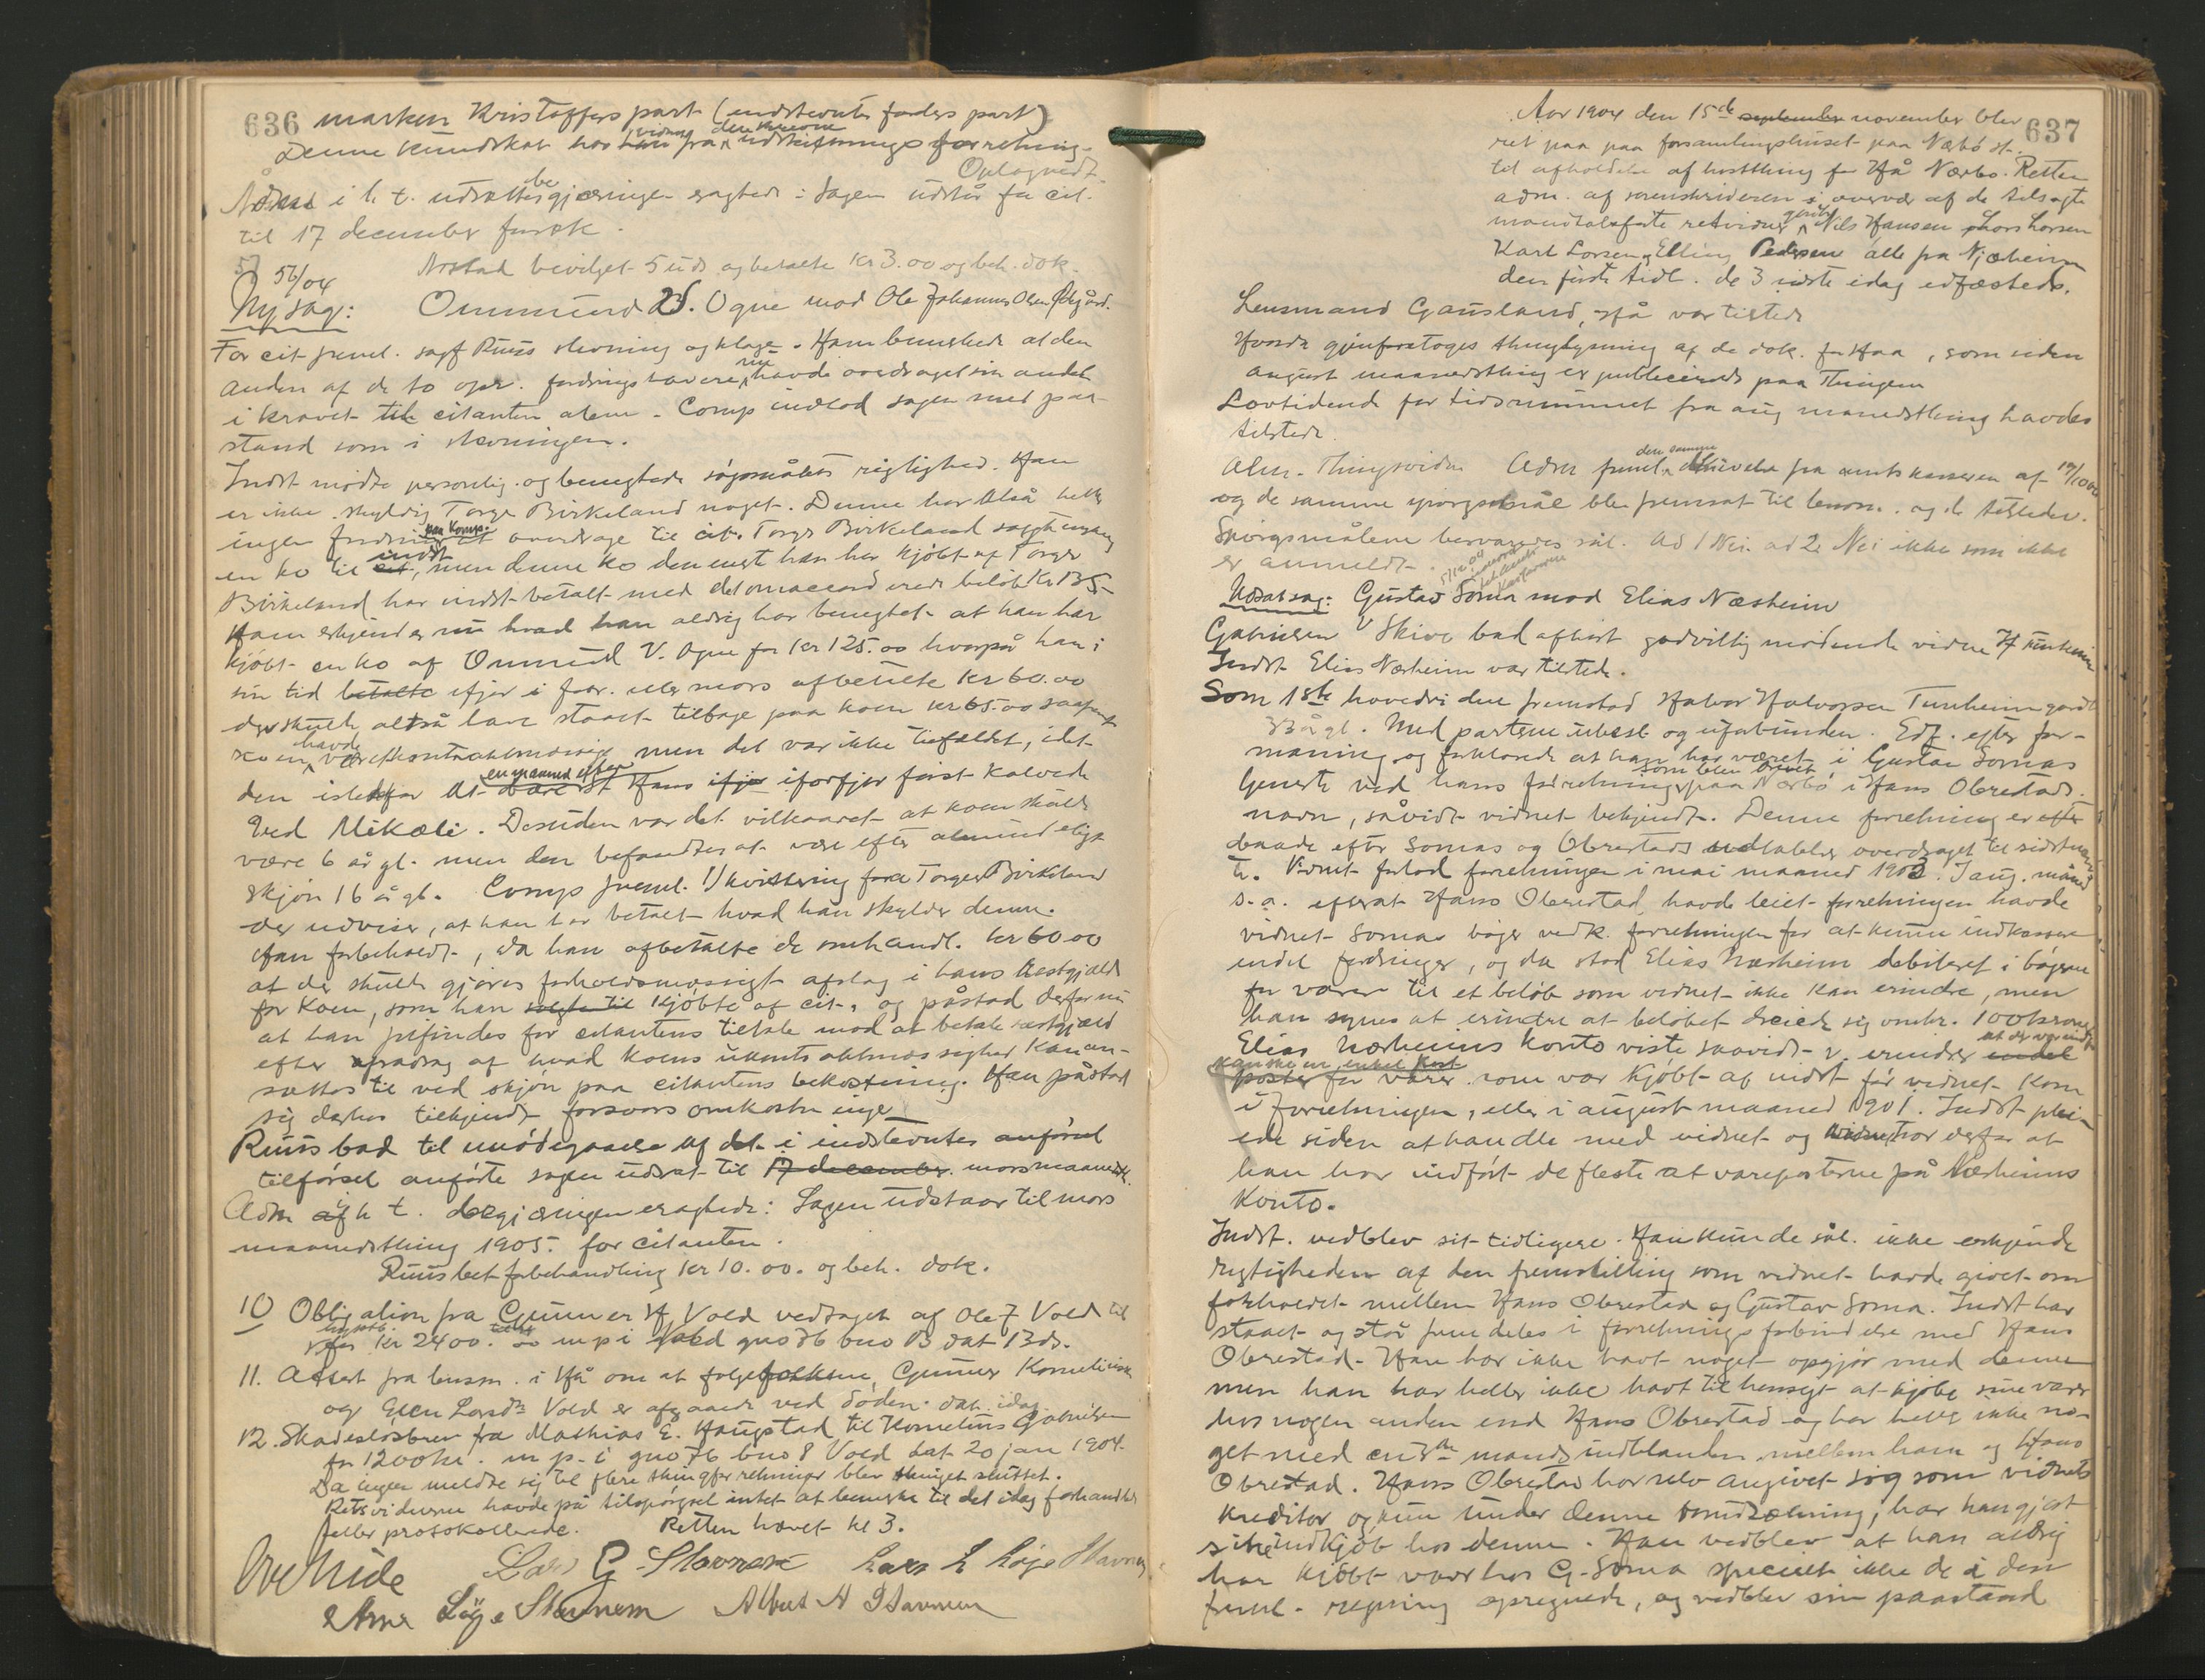 636 marken Kristoffers part (indstevntes faders part)
Denne kundskab har han fra vidnet den krevne udskiftnings forretning.
Oplagnedt.
Adm i h. t. udsættelsesbegjæringen eragtede: Sagen udstår for cit.
til 17 december førstk.
Aarstad bevilget 5 uds og betalte kr 3.00 og beh. dok.
56/04
Ny sag: Ommund V. Ogne mod Ole Johannes Olsen
For cit freml. sagf Ruus stevning og klage. Han bemerkede at den
anden af de to opr. fordringshavere nu havde overdraget sin andel
i kravet til citanten alene. Comp indlod sagen med paa-
stand som i stevningen.
Indst mødte personlig og benegtede søgsmålets rigtighed. Han
er ikke skyldig Torger Birkeland noget. Denne har altså heller
ingen fordring paa Komp. at overdrage til cit. Torger Birkeland solgte engang
en ko til indst, men denne ko den eneste han har kjøbt af Torger
Birkeland har indst betalt med det omaccorderede beløb kr 135
Han erkjender nu hvad han aldrig har benegtet at han har
kjøbt en ko af Ommund V. Ogne for kr 125.00 hvorpå han i
sin tid betalte ifjor i feb. eller mars afbetalte kr 60.00
der skulde altså have staaet tilbage paa koen kr 65.00 saafremt
koen havde været kontraktmæssig men det var ikke tilfældet, idet
den istedfor at være St Hans ifjor en maaned efter iforfjor først kalvede
ved Mikæli. Desuden var det vilkaaret at koen skulde
være 6 år gl. men den befandtes at være efter almindeligt
skjøn 16 år gl. Comp freml. 1/ kvittering fra Torger Birkeland
der udviser, at han har betalt hvad han skylder denne.
Han forbeholdt, da han afbetalte de omhandl. kr 60.00
at der skulde gjøres forholdsmæssigt afslag i hans restgjæld
for koen, som han solgte til kjøbte af cit, og påstod derfor nu
at han frifindes for citantens tiltale mod at betale restgjæld
efter fradrag af hvad koens ukontraktmæssighed kan an-
sættes til ved skjøn paa citantens bekostning. Han påstod
sig derhos tilkjendt forsvarsomkostninger
Ruus bad til imødegaaelse af det i indstevntes anførsel
tilførsel anførte sagen udsat til 17 december marsmaaneds.
Adm i h t. begjæringen eragtede: Sagen udstaar til mars
maanedsthing 1905. for citanten.
Ruus bet forbehandling kr 10.00. og beh. dok.
10 Obligation fra Gunner H Vold vedtaget af Ole J Vold til
for kr 2400.00 m p i Vold gno 76 bno 13 dat 13 ds.
11. Attest fra lensm. i Hå om at folgefolkene, Gunner Korneliusen
og Elen Larsdtr Vold er afgaaede ved døden dat idag
12. Skadesløsbrev fra Mathias E. Haugstad til Kornelius Gabrielsen
for 1200 kr. m p. i gno 76 bno 8 Vold dat 20 jan 1904.
Da ingen meldte sig til flere thingforretninger blev thinget sluttet.
Retsvidnerne havde på tilspørgsel intet at bemerke til det idag forhandlede
eller protokollerede. Retten hævet kl 3.
Lars G. Stavnem Lars L Løge Stavnem
Arne Løge Stavnem Albert A Stavnem
637
Aar 1904 den 15de september november blev
ret paa paa forsamlingshuset paa Nærbø st.
til afholdelse af høstthing for Hå Nærbø. Retten
adm. af sorenskriveren i overvær af de tilsagte
mandtalsførte retsvidner Nils Hansen Lars Larsen
Karl Larsen Elling Pedersen alle fra Njærheim
den første tidl. de 3 sidste idag edfæstede.
Lensmand Gausland, Hå var tilstede
Hvorda gjenforetoges thinglysning af de dok. for Haa, som siden
august maanedsthing er publicerede paa Thingen
Lovtidende for tidsrummet fra aug manedsthing havdes
tilstede.
Alm. Thingsvidne Adm freml. den samme skrivelse fra amtskasseren af 19/10 00
og de samme spørgsmål blev fremsat til lensm. og de tilstedev.
Spørgsmålene besvaredes sål. Ad 1 Nei. ad 2. Nei ikke som ikke
er anmeldt.
Udsat sag: Gustav Soma mod Elias Næsheim
Gabrielsen v/ Skive bad afhørt godvillig mødende vidne H Tunheim
Indst Elias Nærheim var tilstede.
Som 1ste hovedvidne fremstod Halvor Halvorsen Tunheim gaardbr
33 år gl. Med parterne ubesl og uforbunden. Edf. efter for-
maning og forklarede at han har været i Gustav Somas
tjeneste ved hans forretning som blev drevet paa Nærbø i Hans Obrestads
navn, såvidt vidnet bekjendt. Denne forretning er efter
baade efter Somas og Obrestads udtalelser overdraget til sidstnævn
te. Vidnet forlod forretningen i mai maaned 1903. I aug. måned
s. a. efterat Hans Obrestad havde leiet forretningen havde
vidnet Somas bøger vedk. forretningen for at kunne indkassere
endel fordringer, og da stod Elias Nærheim debiteret i bøgerne
for varer til et beløb som vidnet ikke kan erindre, men
han synes at erindre at beløbet dreiede sig omkr. 100 kroner
Elias Nærheims konto viste saavidt v. erindrer endel at der var endel
poster for varer kanske en enkel post som var kjøbt af indst før vidnet kom
i forretningen, eller i august maaned 1901. Indst plei-
ede siden at handle med vidnet og vidnet tror derfor at
han har indført de fleste af vareposterne på Nærheims
konto.
Indst. vedblev sit tidligere. Han kunde sål. ikke erkjende
rigtigheden af den fremstilling som vidnet havde givet om
forholdet mellem Hans Obrestad og Gustav Soma. Indst har
staaet og står fremdeles i forretningsforbindelse med Hans
Obrestad. Han har ikke havt noget opgjør med denne
men han har heller ikke havt til hensigt at kjøbe sine varer
hos nogen anden end Hans Obrestad og har heller ikke no-
get med en 3die mands indblanden mellem ham og Hans
Obrestad. Hans Obrestad har selv angivet sig som vidnets
kreditor og kun under denne forudsætning, har han gjort
sine indkjøb hos denne. Han vedblev at han aldrig
har kjøbt varer hos G. Soma specielt ikke de i den
freml. regning opregnede, og vedblev sin paastand